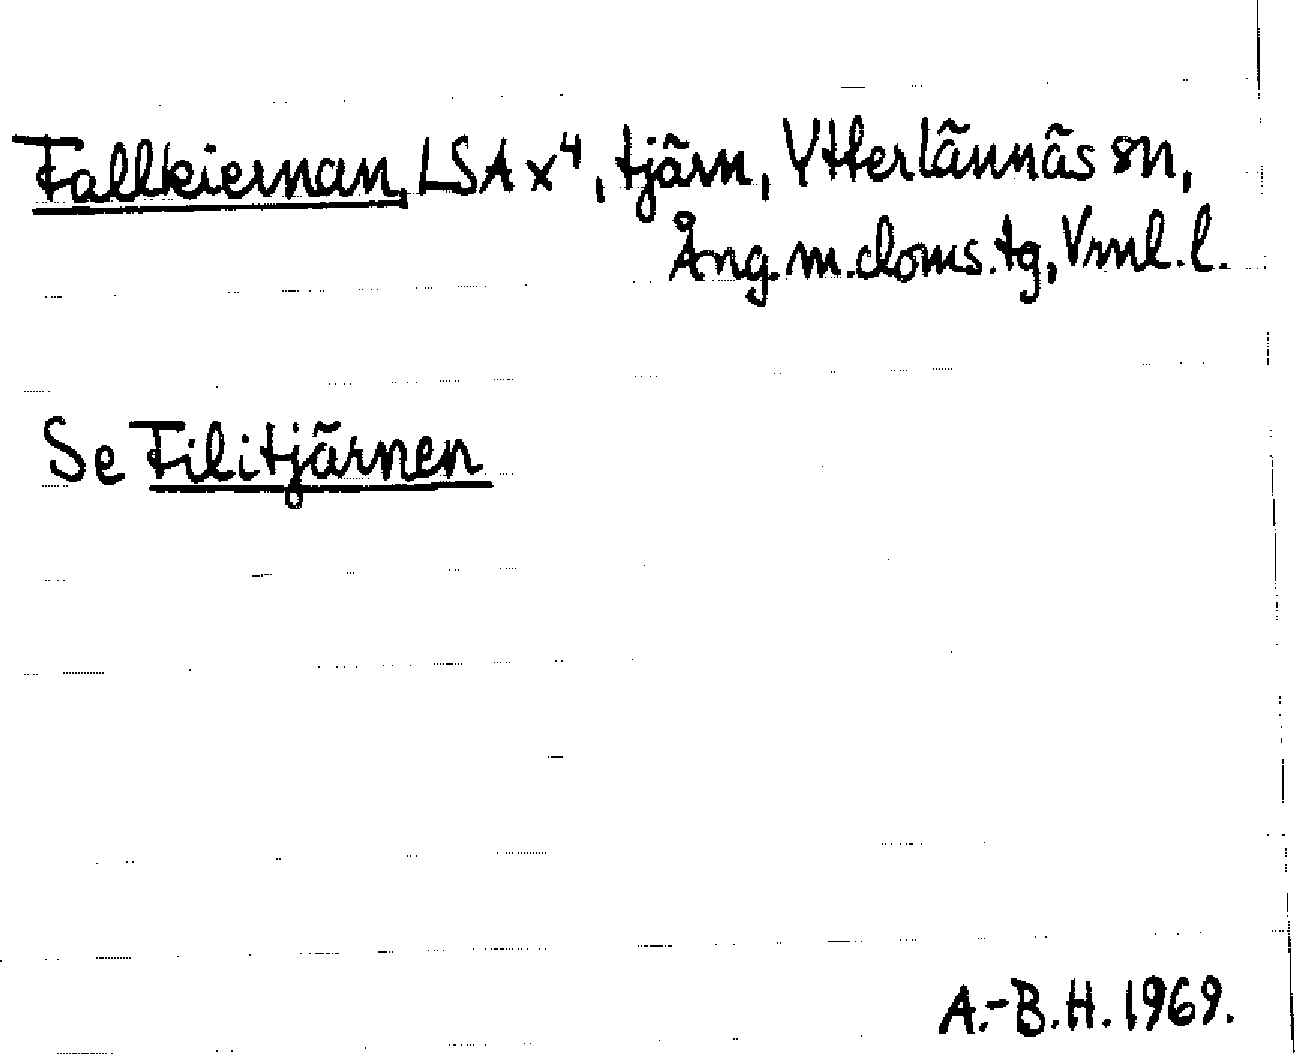 Fallkiernan, LSA x⁴, tjärn, Ytterlännäs sn,
Ång. m. doms. tg, Vml. l.
Se Filitjärnen
A.-B.H. 1969.